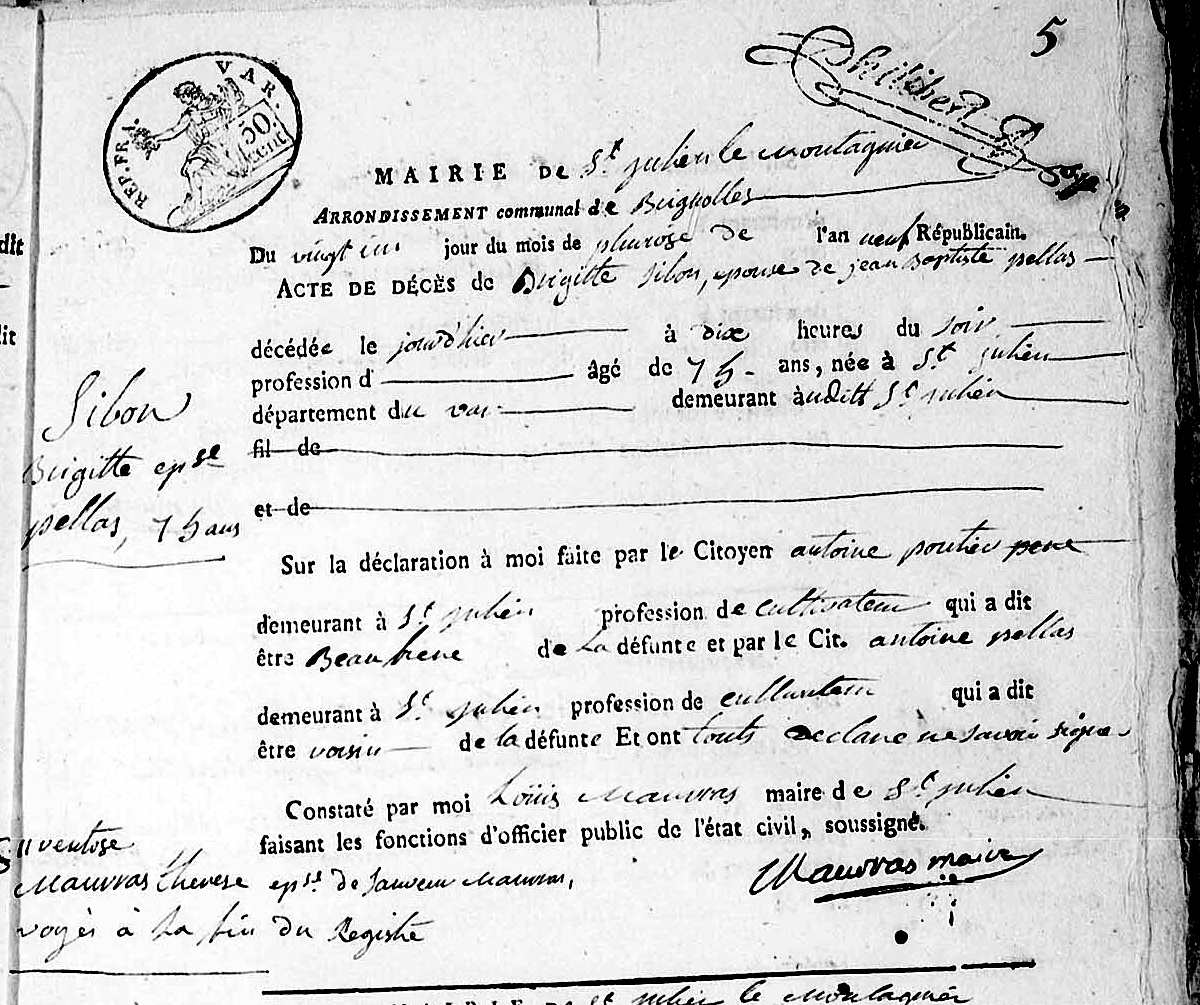 5
REP. FRA. VAR.
50 cent
Philibert
MAIRIE DE St julien le Montagnier
ARRONDISSEMENT communal de Brignolles
Du vingt un jour du mois de pluviose de l'an neuf Républicain.
ACTE DE DÉCÈS de Brigitte Sibon, epouse de jean Baptiste pellas
décédée le jourd'hier à dix heures du soir
profession d' âgé de 75 ans, née à St julien
département du var demeurant audit St julien
fil de
et de
Sibon
Brigitte epse
pellas, 75 ans
Sur la déclaration à moi faite par le Citoyen antoine
demeurant à St julien profession de cultivateur qui a dit
être Beau frere de La défunte et par le Cit. antoine pellas
demeurant à St julien profession de cultivateur qui a dit
être voisin de la défunte Et ont touts declare ne savoir signer
Constaté par moi Louis Mauvras maire de St julien
faisant les fonctions d'officier public de l'état civil, soussigné.
Mauvras maire
11 ventose
Mauvras Therese epse de Sauveur Mauvras,
voyés à la fin du Registre
MAIRIE DE St julien le Montagnier